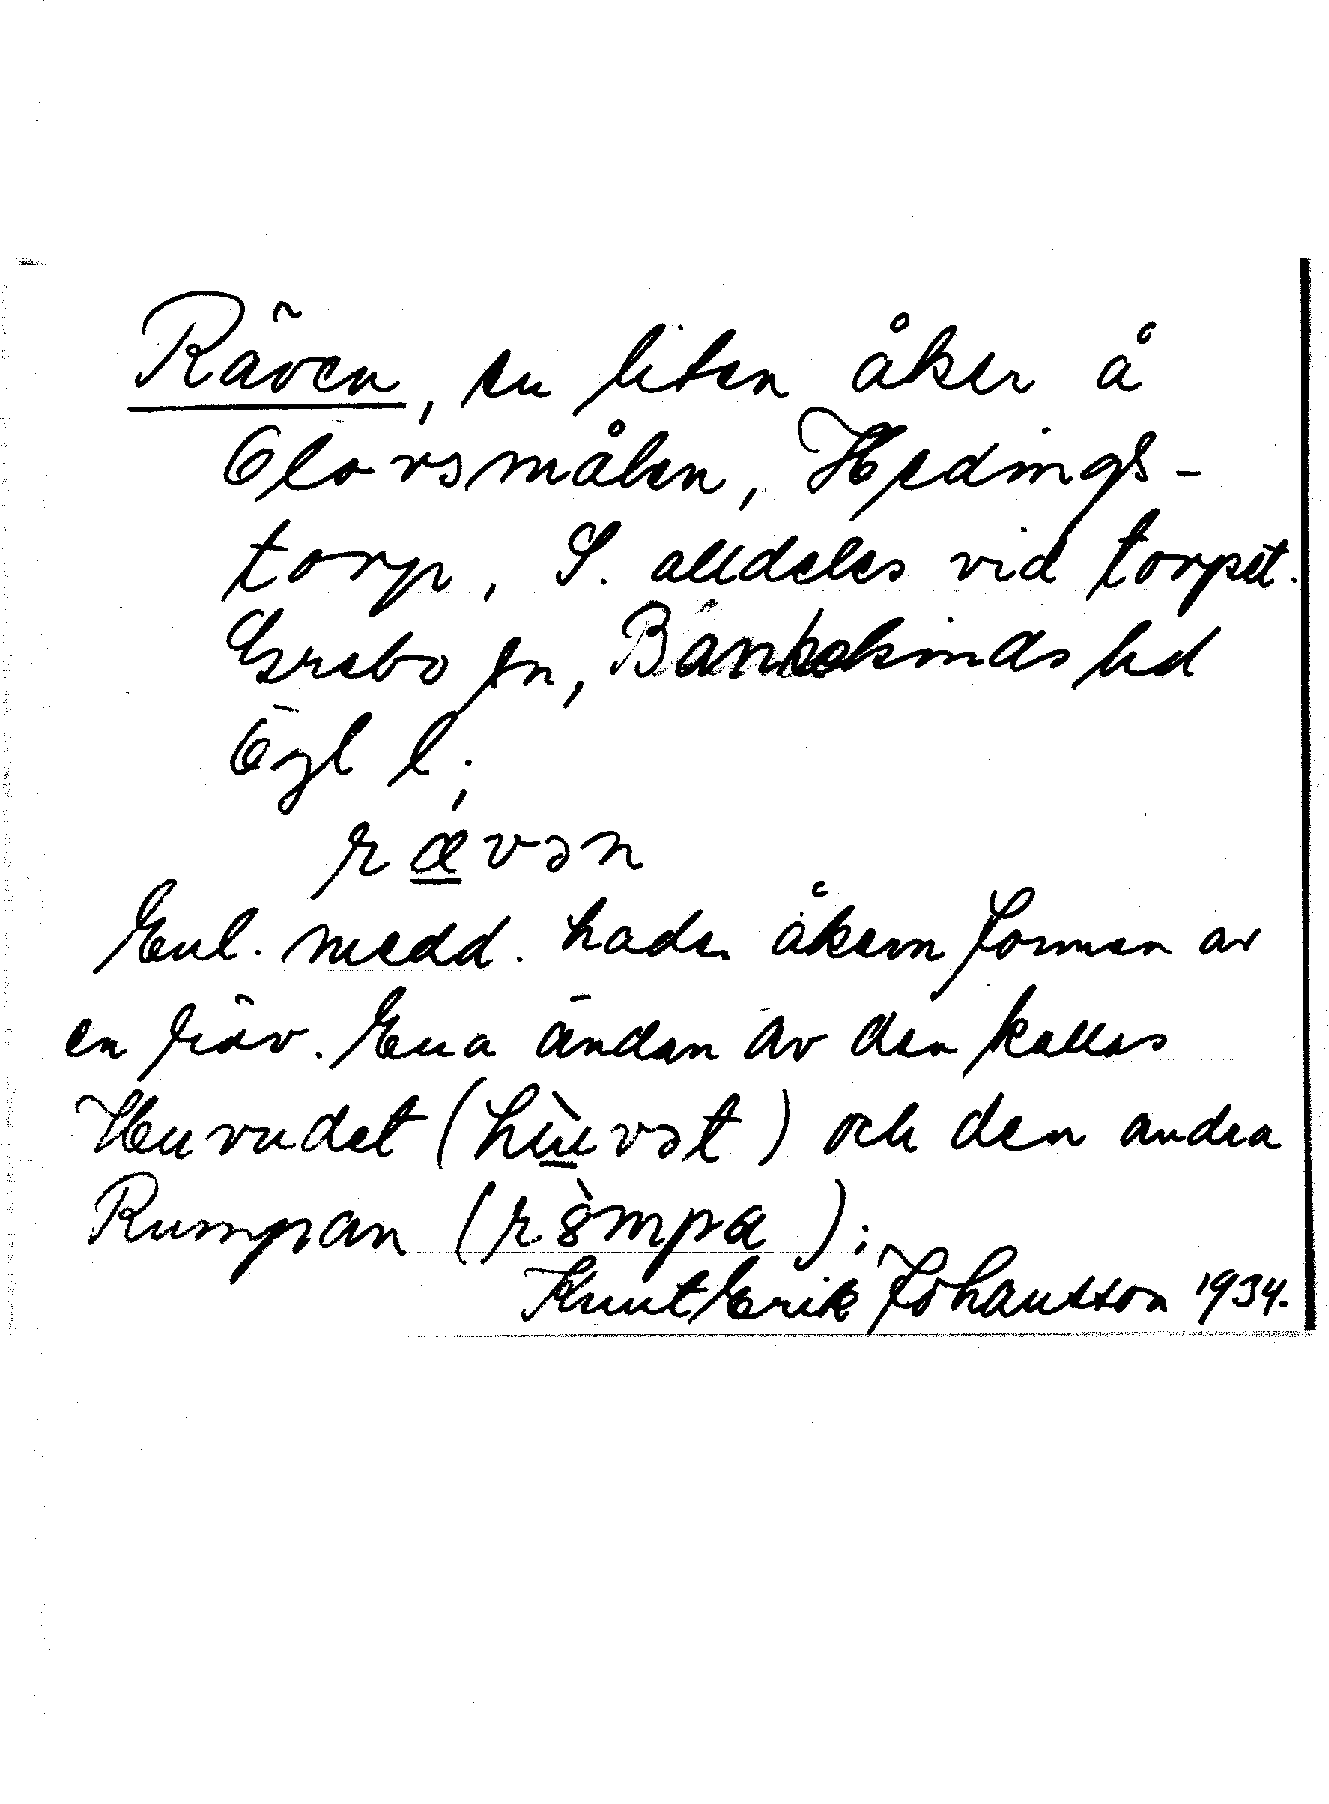 Räven, en liten åker å
Olovsmålen, Hedings-
torp, S. alldeles vid torpet.
Grebo sn, Bankekinds hd
Ögl l.;
rævən
Enl. medd. hade åkern formen av
en räv. Ena ändan av den kallas
Huvudet (hùvət) och den andra
Rumpan (    );
Knut Erik Johansson 1934.